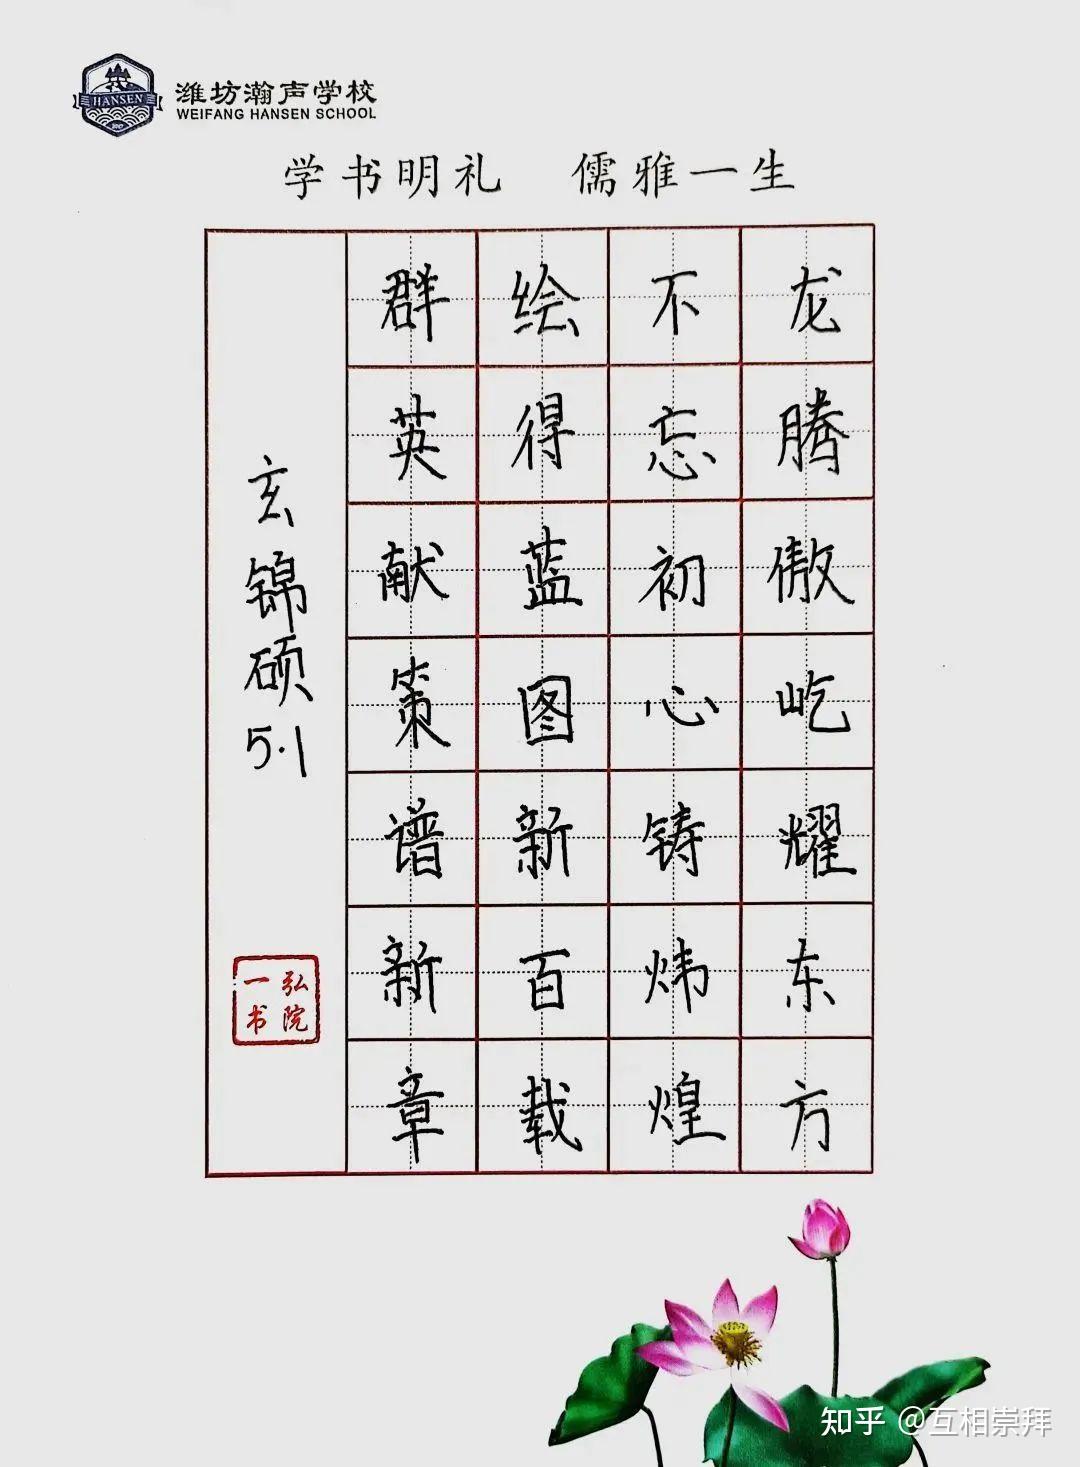 潍坊瀚声学校
WEIFANG HANSEN SCHOOL
HANSEN
学书明礼 儒雅一生
龙腾傲屹耀东方
不忘初心铸炜煌
绘得蓝图新百载
群英献策谱新章
玄锦硕
5.1
弘院
一书
知乎 @互相崇拜